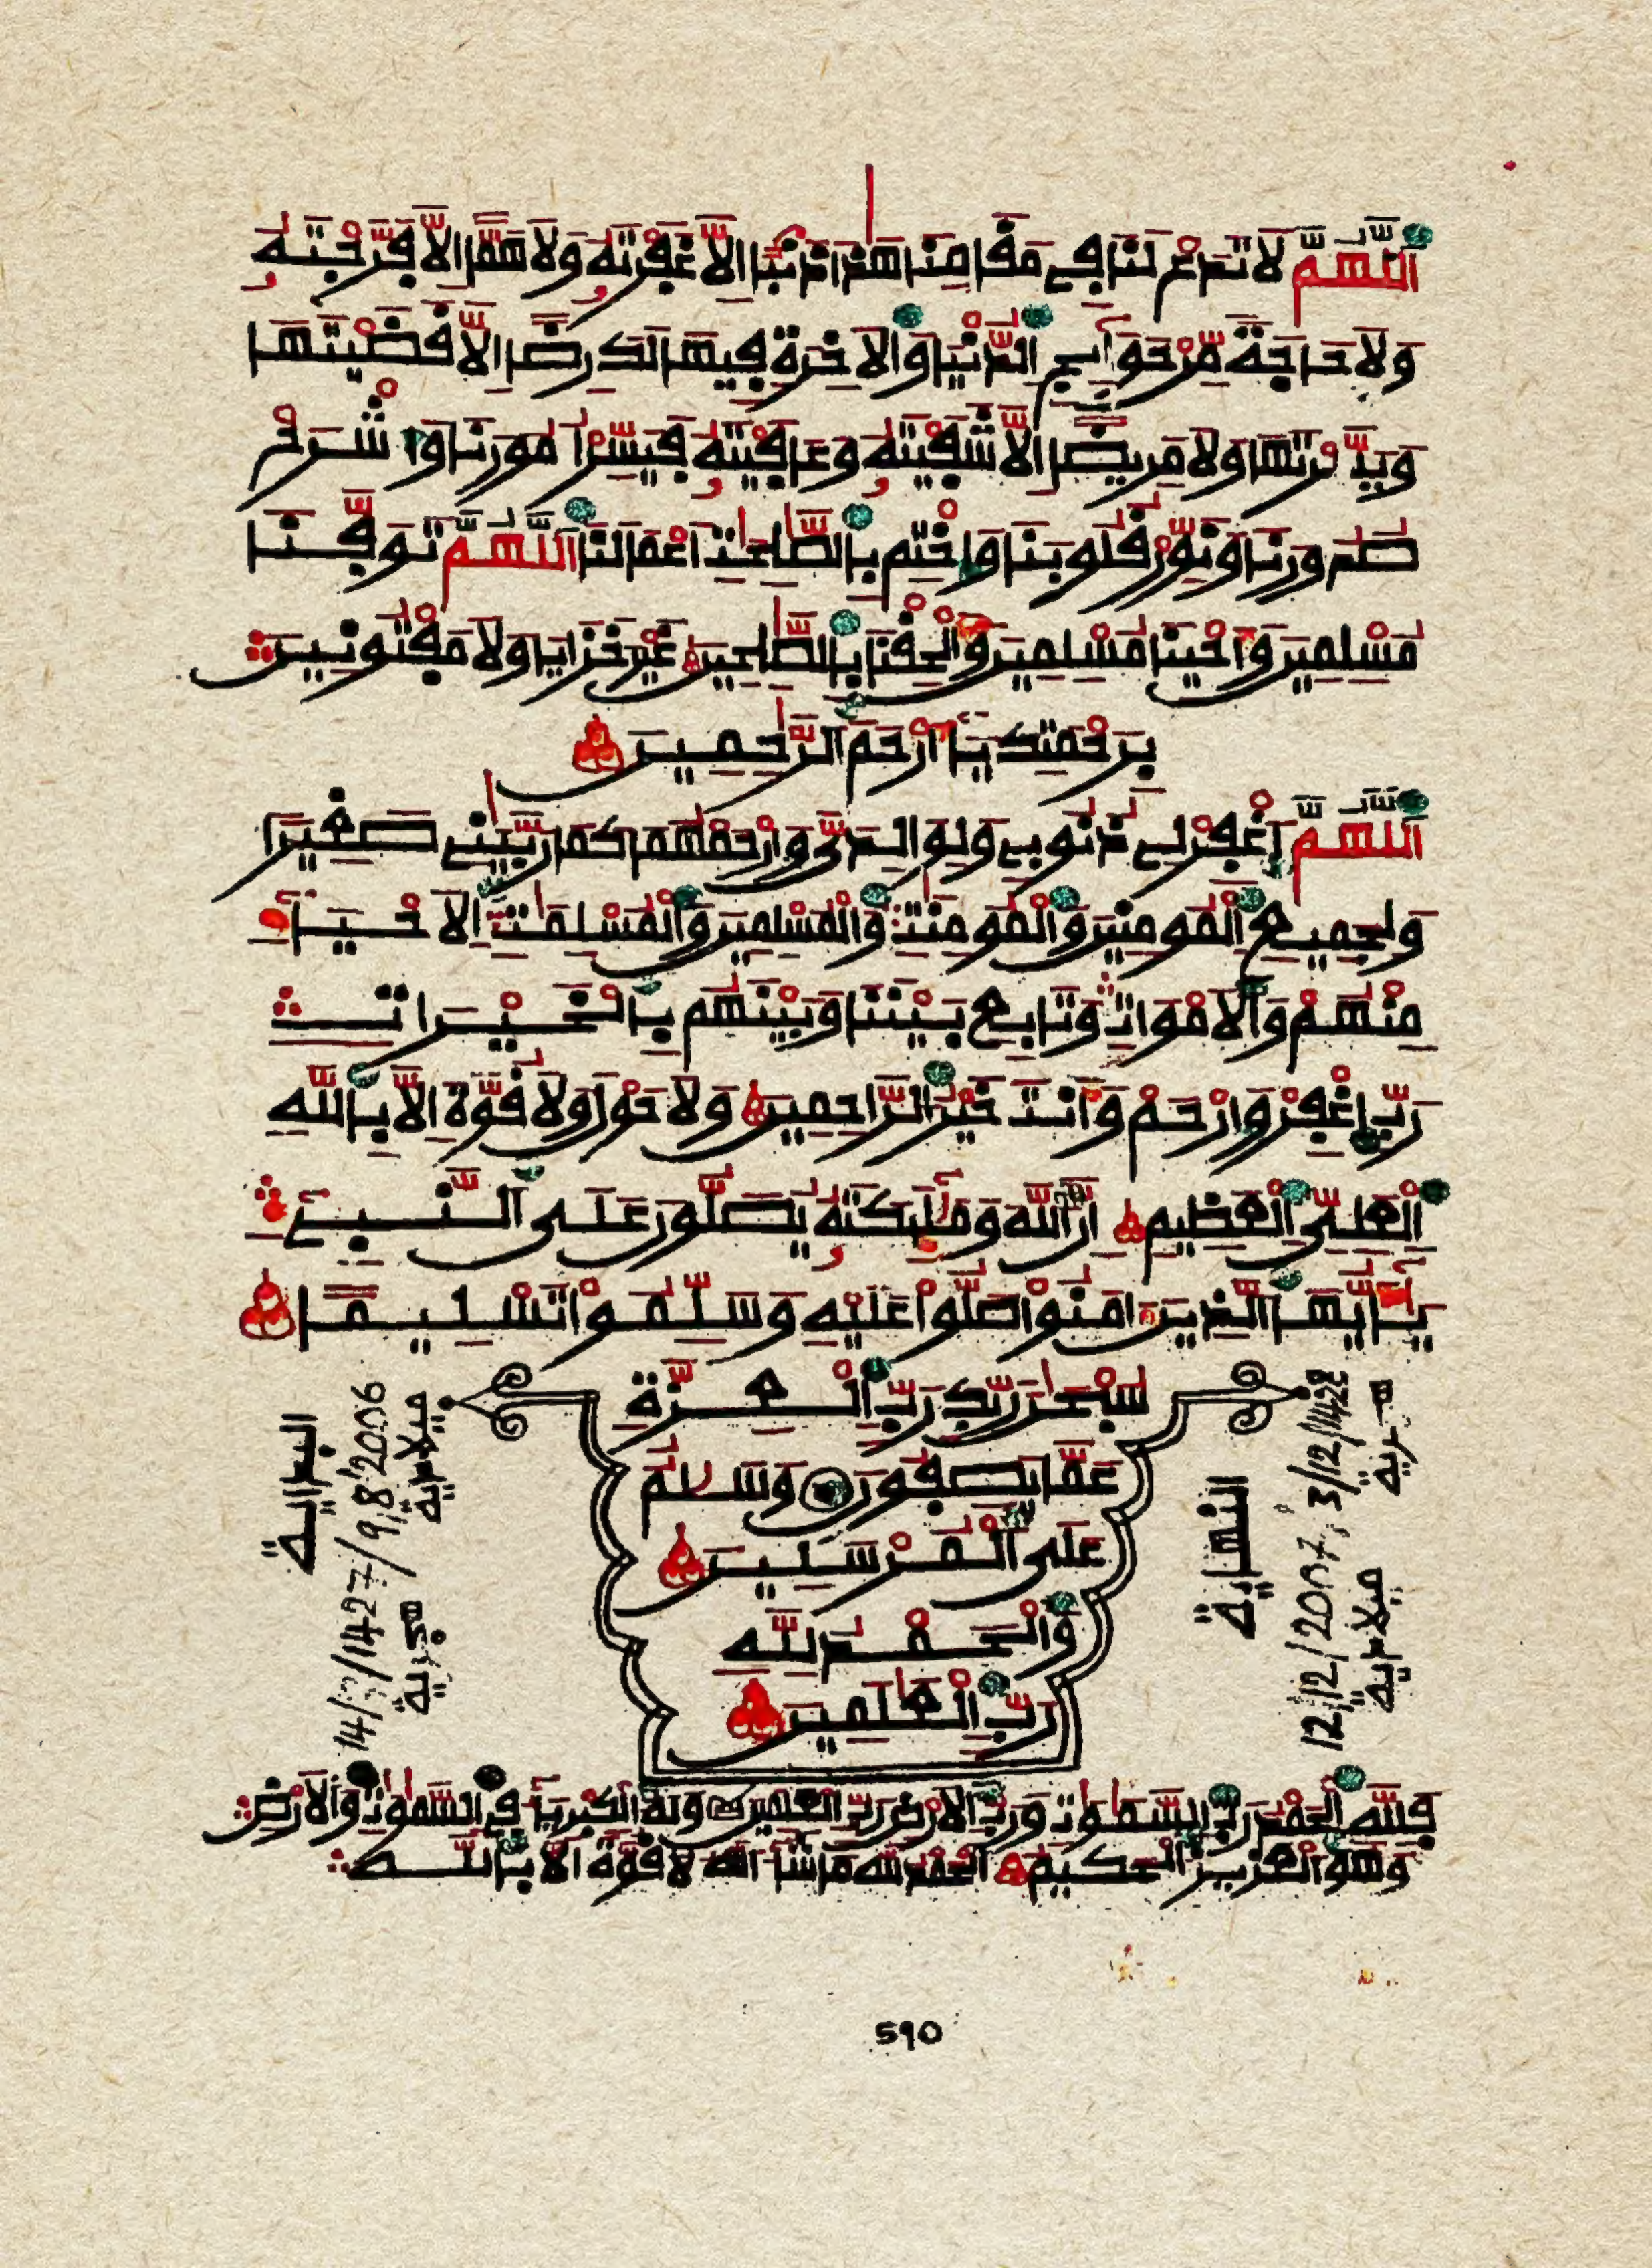 اَللَّهُمَّ لَا تَدَعْ لَنَا فِي مَقَامِنَا هَذَا ذَنْبًا اِلَّا غَفَرْتَهُ وَلَا هَمًّا اِلَّا فَرَّجْتَهُ
وَلَا حَاجَةً مِّنْ حَوَآئِجِ اِلدُّنْيَا وَالَاخِرَةِ فِيهَا لَكَ رِضًا اِلَّا قَضَيْتَهَا
وَيَسَّرْتَهَا وَلَا مَرِيضًا اِلَّا شَفَيْتَهُ وَعَافَيْتَهُ فَيَسِّرُ امُورَنَا وَاشْرَحْ
صُدُورَنَا وَنَوِّرْ قُلُوبَنَا وَاخْتِم بِالصَّٰلِحَٰتِ أَعْمَالَنَا اَللَّهُمَّ تَوَفَّنَا
مُسْلِمِينَ وَأَحْيِنَا مُسْلِمِينَ وَأَلْحِقْنَا بِالصَّٰلِحِينَ غَيْرَ خَزَايَا وَلَا مَفْتُونِينَ
بِرَحْمَتِكَ يَا أَرْحَمَ اَلرَّٰحِمِينَ
اَللَّهُمَّ اَغْفِرْ لِي ذُنُوبِي وَلِوَالِدَيَّ وَارْحَمْهُمَا كَمَا رَبَّيَٰنِي صَغِيرًا
وَلِجَمِيعِ اِلْمُومِنِينَ وَالْمُومِنَٰتِ وَالْمُسْلِمِينَ وَالْمُسْلِمَٰتِ اِلَاحْيَآءِ
مِنْهُمْ وَالَامْوَاتِ وَتَابِعْ بَيْنَنَا وَبَيْنَهُم بِالْخَيْرَاتِ
رَبِّ اِغْفِرْ وَارْحَمْ وَأَنتَ خَيْرُ الرَّاحِمِينَ وَلَا حَوْلَ وَلَا قُوَّةَ اِلَّا بِاللَّهِ
اِلْعَلِيِّ اِلْعَظِيمِ إِنَّ اَللَّهَ وَمَلَٰئِكَتَهُ يُصَلُّونَ عَلَى اَلنَّبِيءِ
يَٰأَيُّهَا اَلذِينَ ءَامَنُواْ صَلُّواْ عَلَيْهِ وَسَلِّمُواْ تَسْلِيمًا
سُبْحَٰنَ رَبِّكَ رَبِّ اِلْعِزَّةِ
عَمَّا يَصِفُونَ وَسَلَٰمٌ
عَلَى اَلْمُرْسَلِينَ
وَالْحَمْدُ لِلَّهِ
رَبِّ اِلْعَٰلَمِينَ
البداية
1427/9,8/2006
هجرية ميلادية
النهاية
12/12/2007 , 3/12/1428
ميلادية هجرية
فَلِلَّهِ اِلْحَمْدُ رَبِّ اِلسَّمَٰوَٰتِ وَرَبِّ اِلَارْضِ رَبِّ اِلْعَٰلَمِينَ وَلَهُ اُلْكِبْرِيَآءُ فِي اِلسَّمَٰوَٰتِ وَالَارْضِ
وَهُوَ اَلْعَزِيزُ اُلْحَكِيمُ اَلْحَمْدُ لِلَّهِ مَا شَآءَ اَللَّهُ لَا قُوَّةَ اِلَّا بِاللَّهِ
590